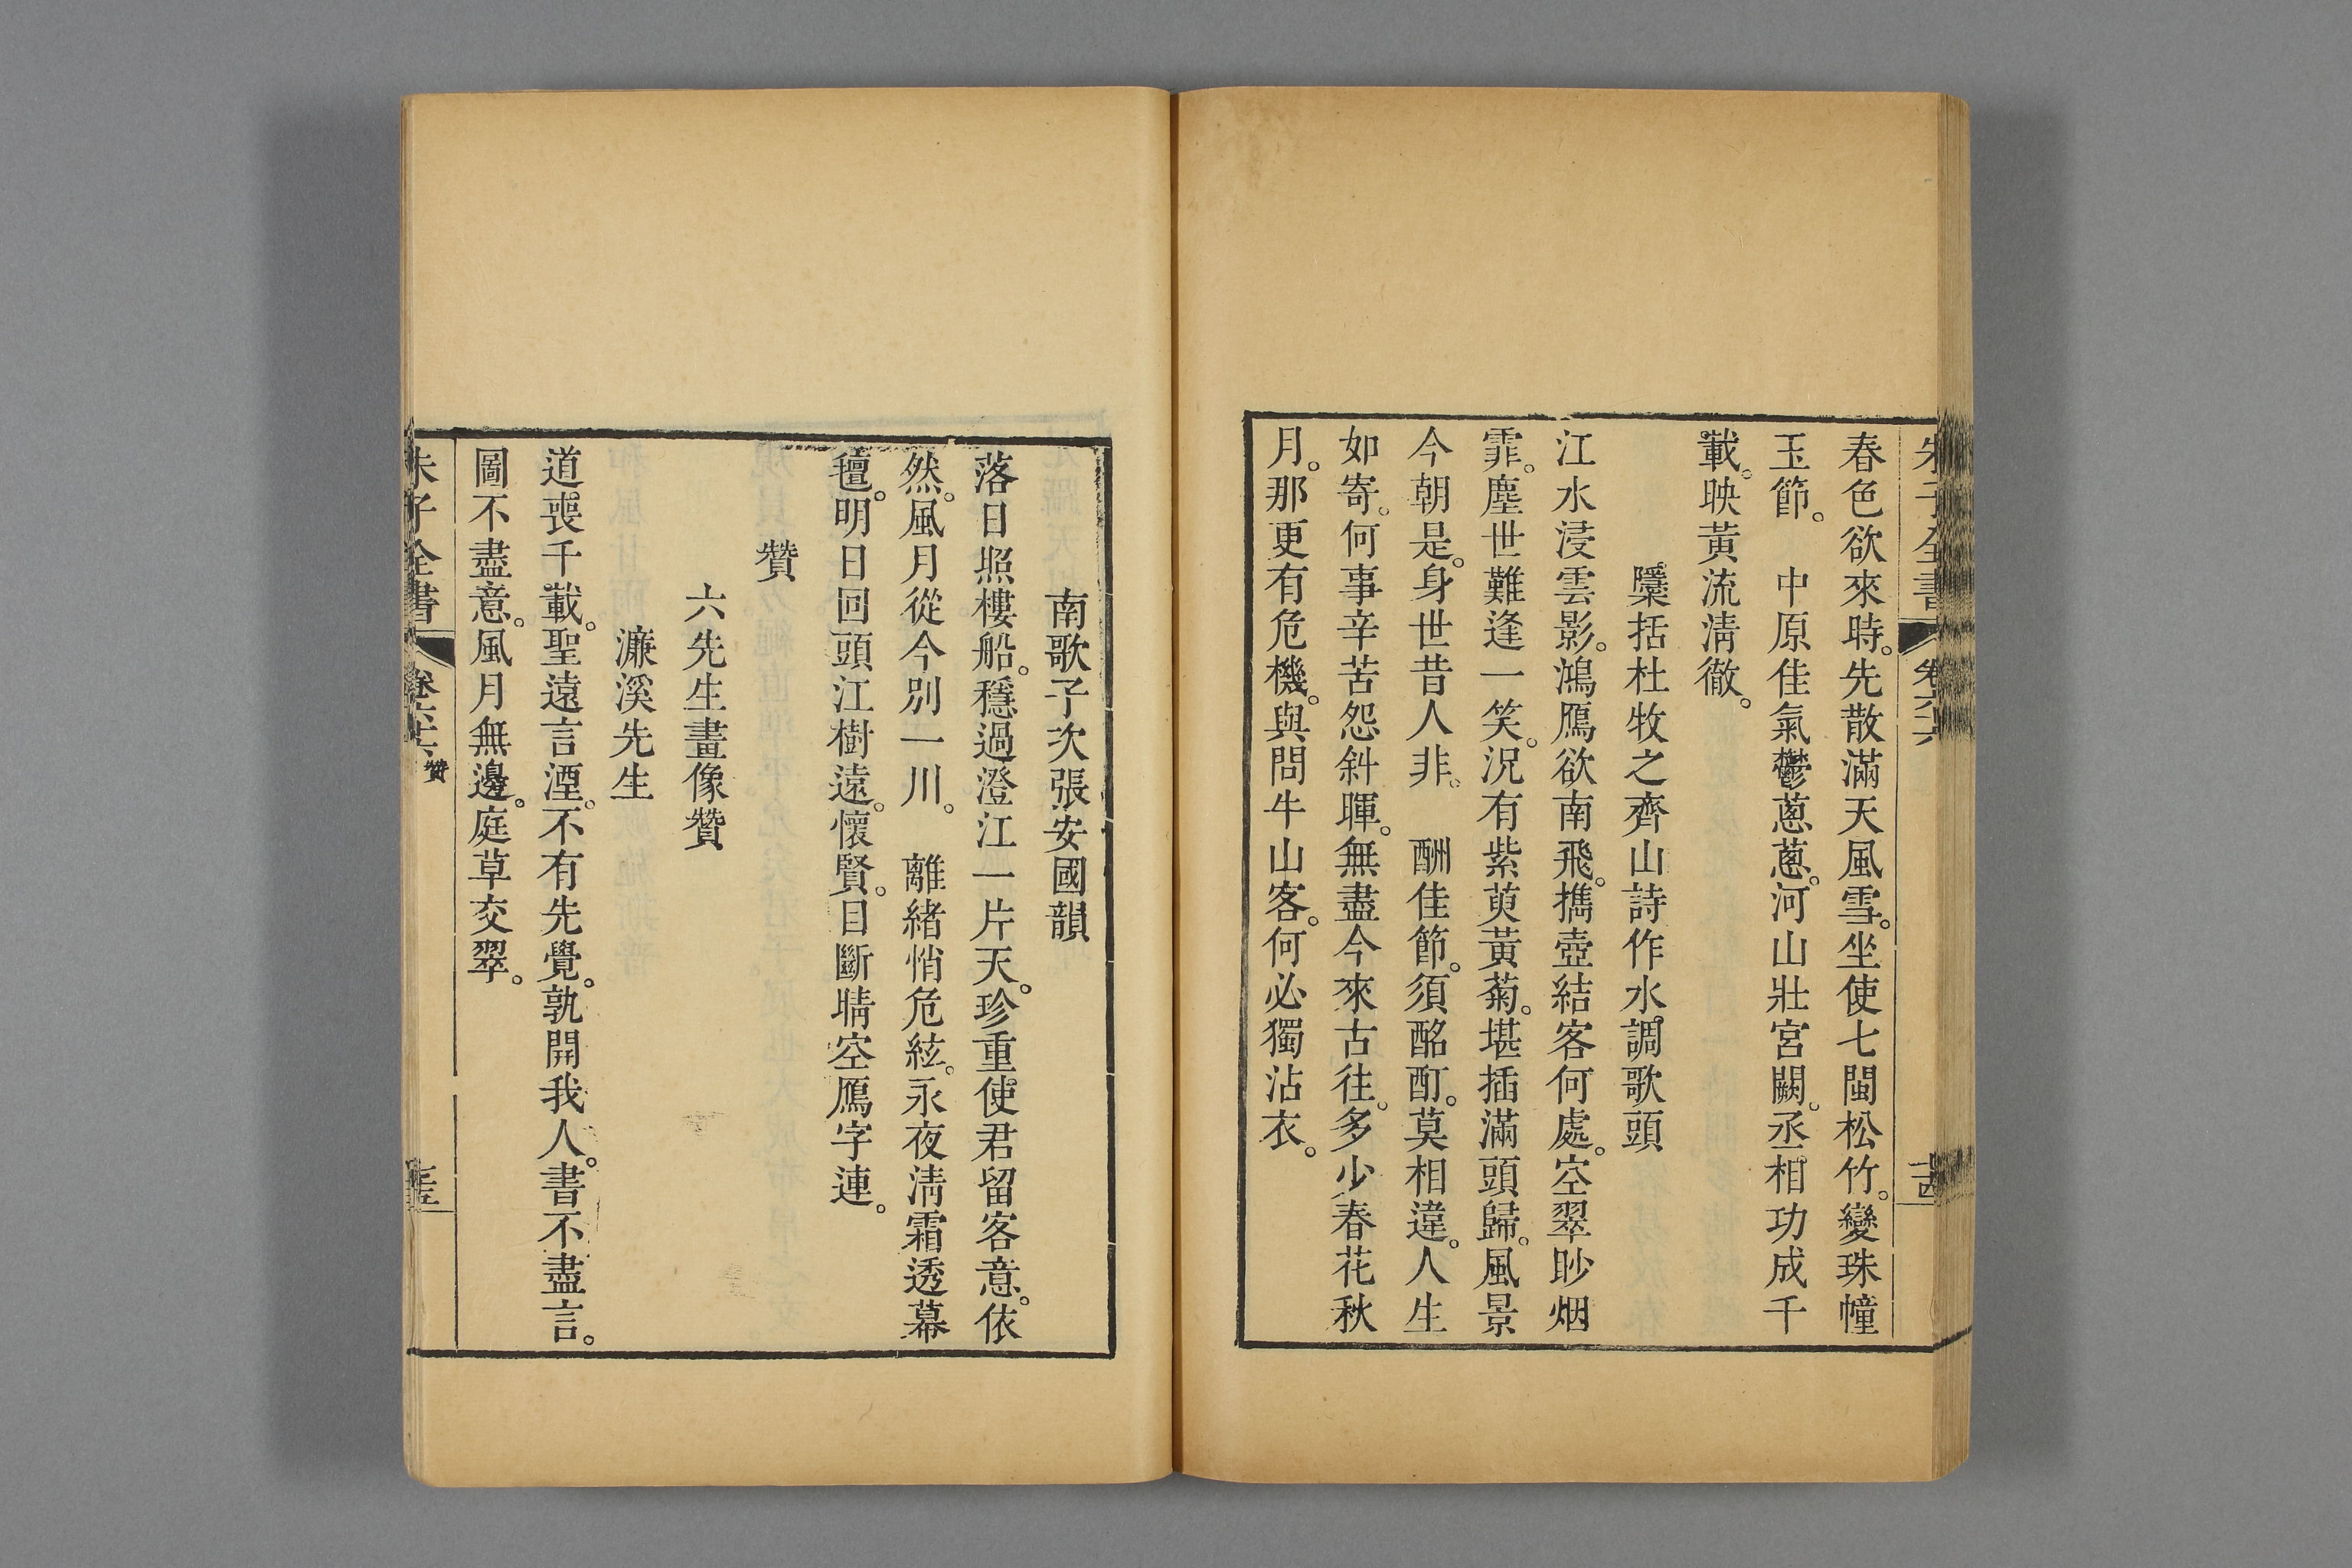 朱子全書 卷六十六 十四
春色欲來時。先散滿天風雪。坐使七閩松竹。變珠幢
玉節。 中原佳氣鬱蔥蔥。河山壯宮闕。丞相功成千
載。映黃流淸徹。
檃括杜牧之齊山詩作水調歌頭
江水浸雲影。鴻鴈欲南飛。攜壺結客何處。空翠眇烟
霏。塵世難逢一笑。況有紫萸黃菊。堪插滿頭歸。風景
今朝是。身世昔人非。 酬佳節。須酩酊。莫相違。人生
如寄。何事辛苦怨斜暉。無盡今來古往。多少春花秋
月。那更有危機。與問牛山客。何必獨沾衣。
南歌子次張安國韻
落日照樓船。穩過澄江一片天。珍重使君留客意。依
然。風月從今別一川。 離緒悄危絃。永夜淸霜透幕
氊。明日回頭江樹遠。懷賢。目斷晴空鴈字連。
贊
六先生畫像贊
濂溪先生
道喪千載。聖遠言湮。不有先覺。孰開我人。書不盡言。
圖不盡意。風月無邊。庭草交翠。
朱子全書 卷六十六 贊 十五